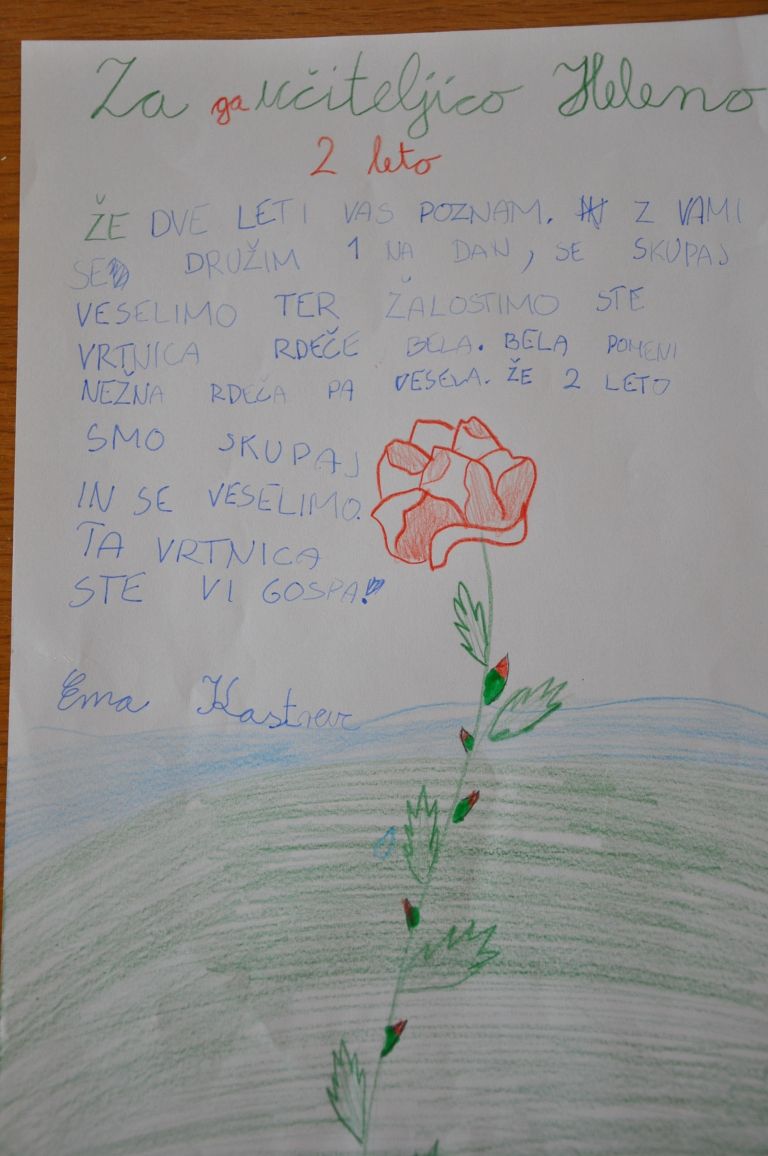 Za ga učiteljico Heleno
2 leto
ŽE DVE LETI VAS POZNAM. Z VAMI
SE DRUŽIM 1 NA DAN, SE SKUPAJ
VESELIMO TER ŽALOSTIMO STE
VRTNICA RDEČE BELA. BELA POMENI
NEŽNA RDEČA PA VESELA. ŽE 2 LETO
SMO SKUPAJ
IN SE VESELIMO.
TA VRTNICA
STE VI GOSPA!
Ema